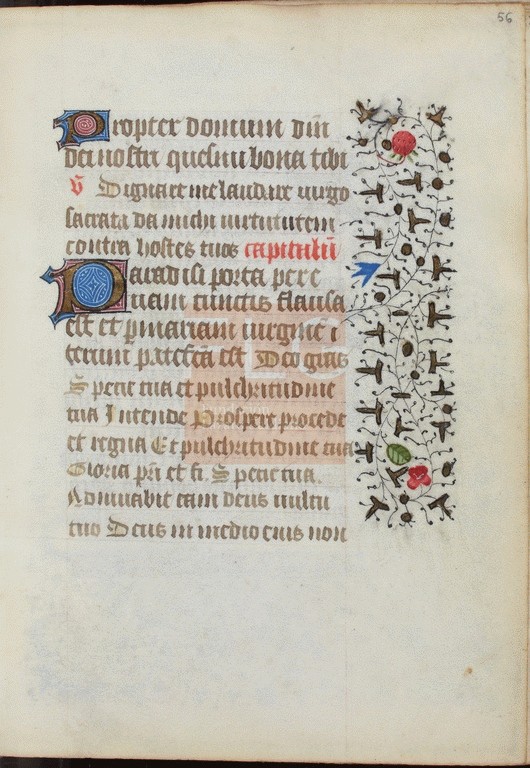 56
Propter domum dn̄i
dei nostri quesiui bona tibi
v̄ Dignare me laudare uirgo
sacrata da michi uirtututem
contra hostes tuos capitulū
Paradisi porta per e
uuam cunctis clausa
est et p mariam uirginē i
terum patefc̄a est Deo grās
Specie tua et pulchritudine
tua Intende prospere procede
et regna Et pulchritudine tua
Gloria pr̄i et fi. Specie tua.
Adiuuabit eam deus uultu
tuo Deus in medio eius non